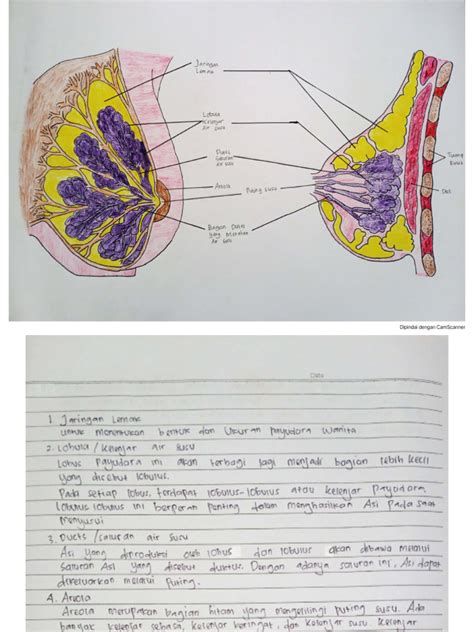 Jaringan
Lemak
Lobula
Kelenjar
Air susu
Ducts
Saluran
Air susu
Areola
Puting susu
Bagian Ducts
yang
Air susu
Tulang
Rusuk
Otot
Dipindai dengan CamScanner
Date
1. Jaringan Lemak
untuk menentukan bentuk dan Ukuran payudara Wanita
2. Lobula / kelenjar air susu
Lobus Payudara ini akan terbagi lagi menjadi bagian lebih kecil
yang disebut lobulus.
Pada setiap lobus, terdapat lobulus-lobulus atau kelenjar payudara
Lobulus lobulus ini berperan penting dalam menghasilkan Asi Pada saat
menyusui
3. Ducts / saluran air susu
Asi yang diproduksi oleh lobus dan lobulus akan dibawa melalui
saluran Asi yang disebut duktus. Dengan adanya saluran ini, Asi dapat
dikeluarkan melalui Puting.
4. Areola
Areola merupakan bagian hitam yang mengelilingi puting susu. Ada
banyak kelenjar sebasea, kelenjar keringat, dan kelenjar susu. Kelenjar